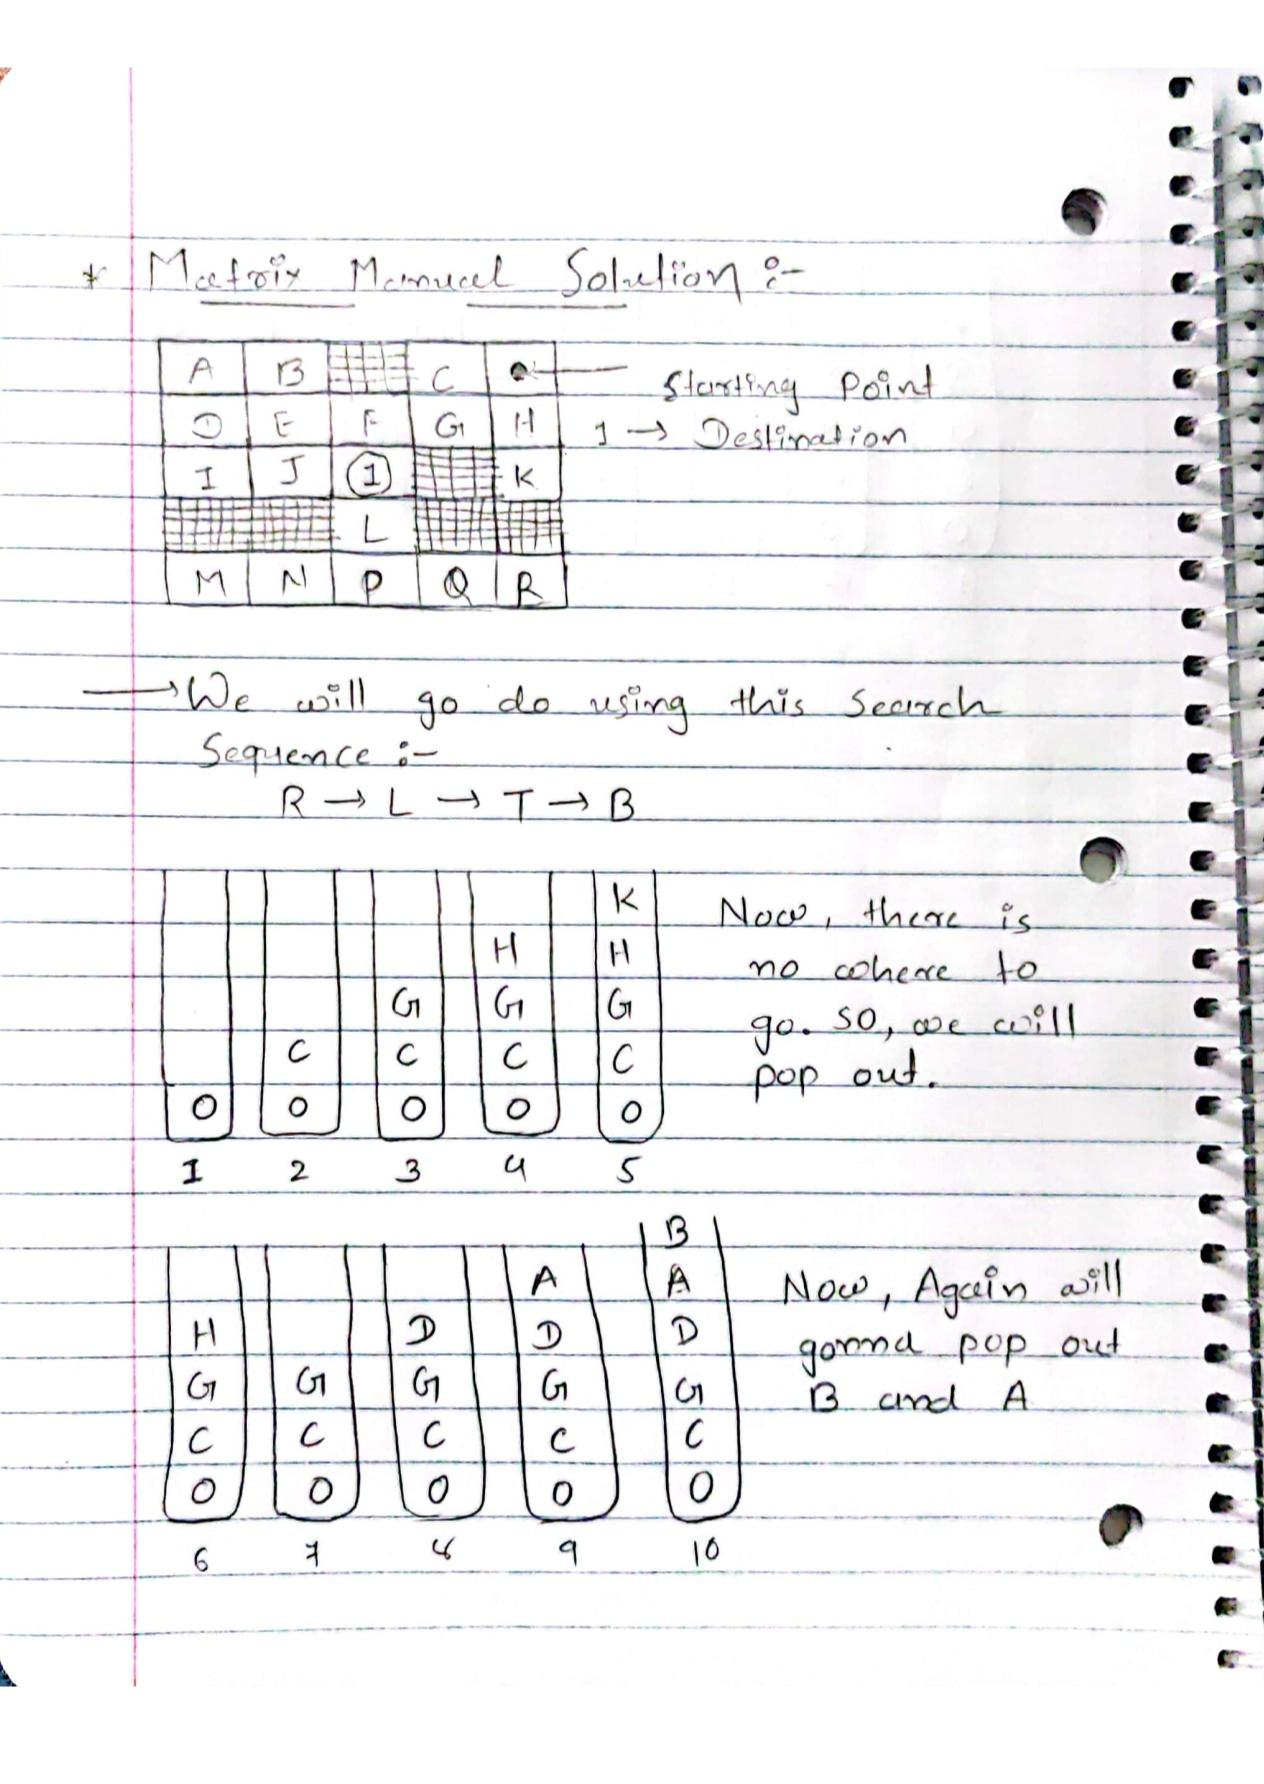 * Matrix Manual Solution :-
A B C
Starting Point
D E F G H
1 → Destination
I J 1 K
L
M N P Q R
→ We will go do using this Search
Sequence :-
R → L → T → B
K
H H
G G G
C C C C
O O O O O
1 2 3 4 5
Now, there is
no where to
go. So, we will
pop out.
B
A A
H D D D
G G G G G
C C C C C
O O O O O
6 7 8 9 10
Now, Again will
gonna pop out
B and A